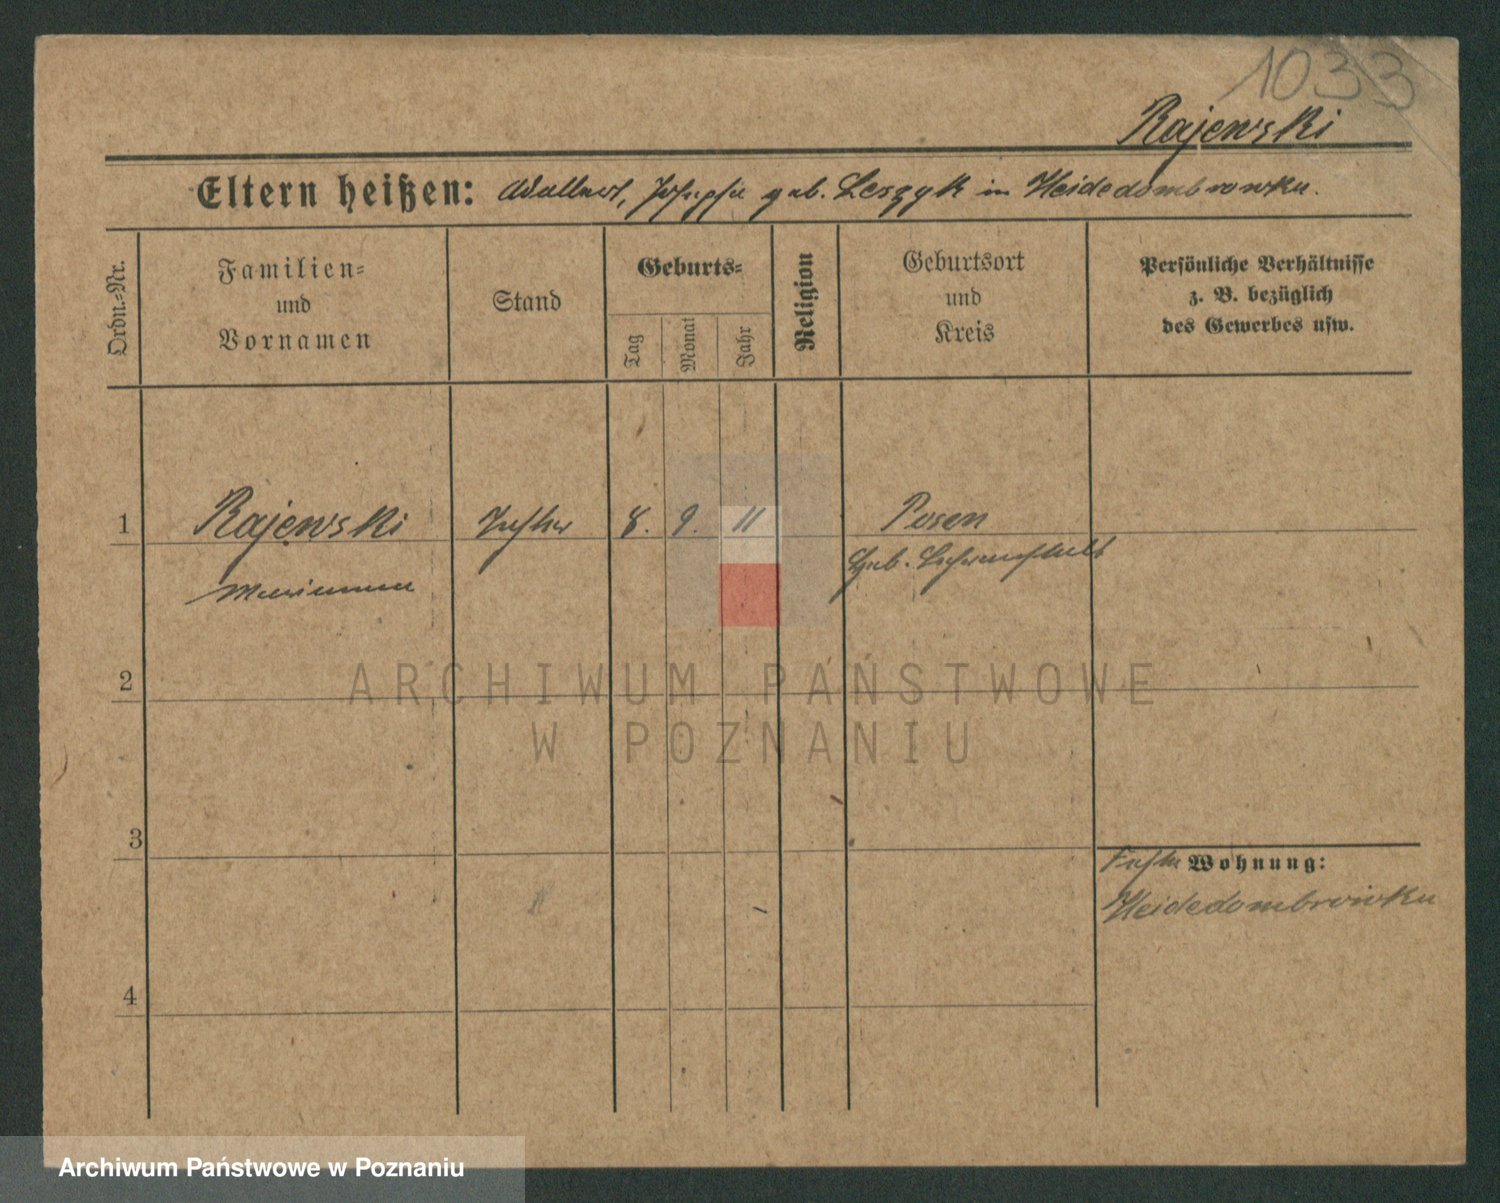 1033
Rajewski
Eltern heißen: Adalbert, Josepha geb. Leszyk in Heidedombrowka.
Ordn.-Nr.
Familien-
und
Vornamen
Stand
Geburts-
Tag
Monat
Jahr
Religion
Geburtsort
und
Kreis
Persönliche Verhältnisse
z. B. bezüglich
des Gewerbes usw.
1
Rajewski
8. 9. 11
Posen
2
ARCHIWUM PAŃSTWOWE
W POZNANIU
3
Wohnung:
Heidedombrowka
4
Archiwum Państwowe w Poznaniu